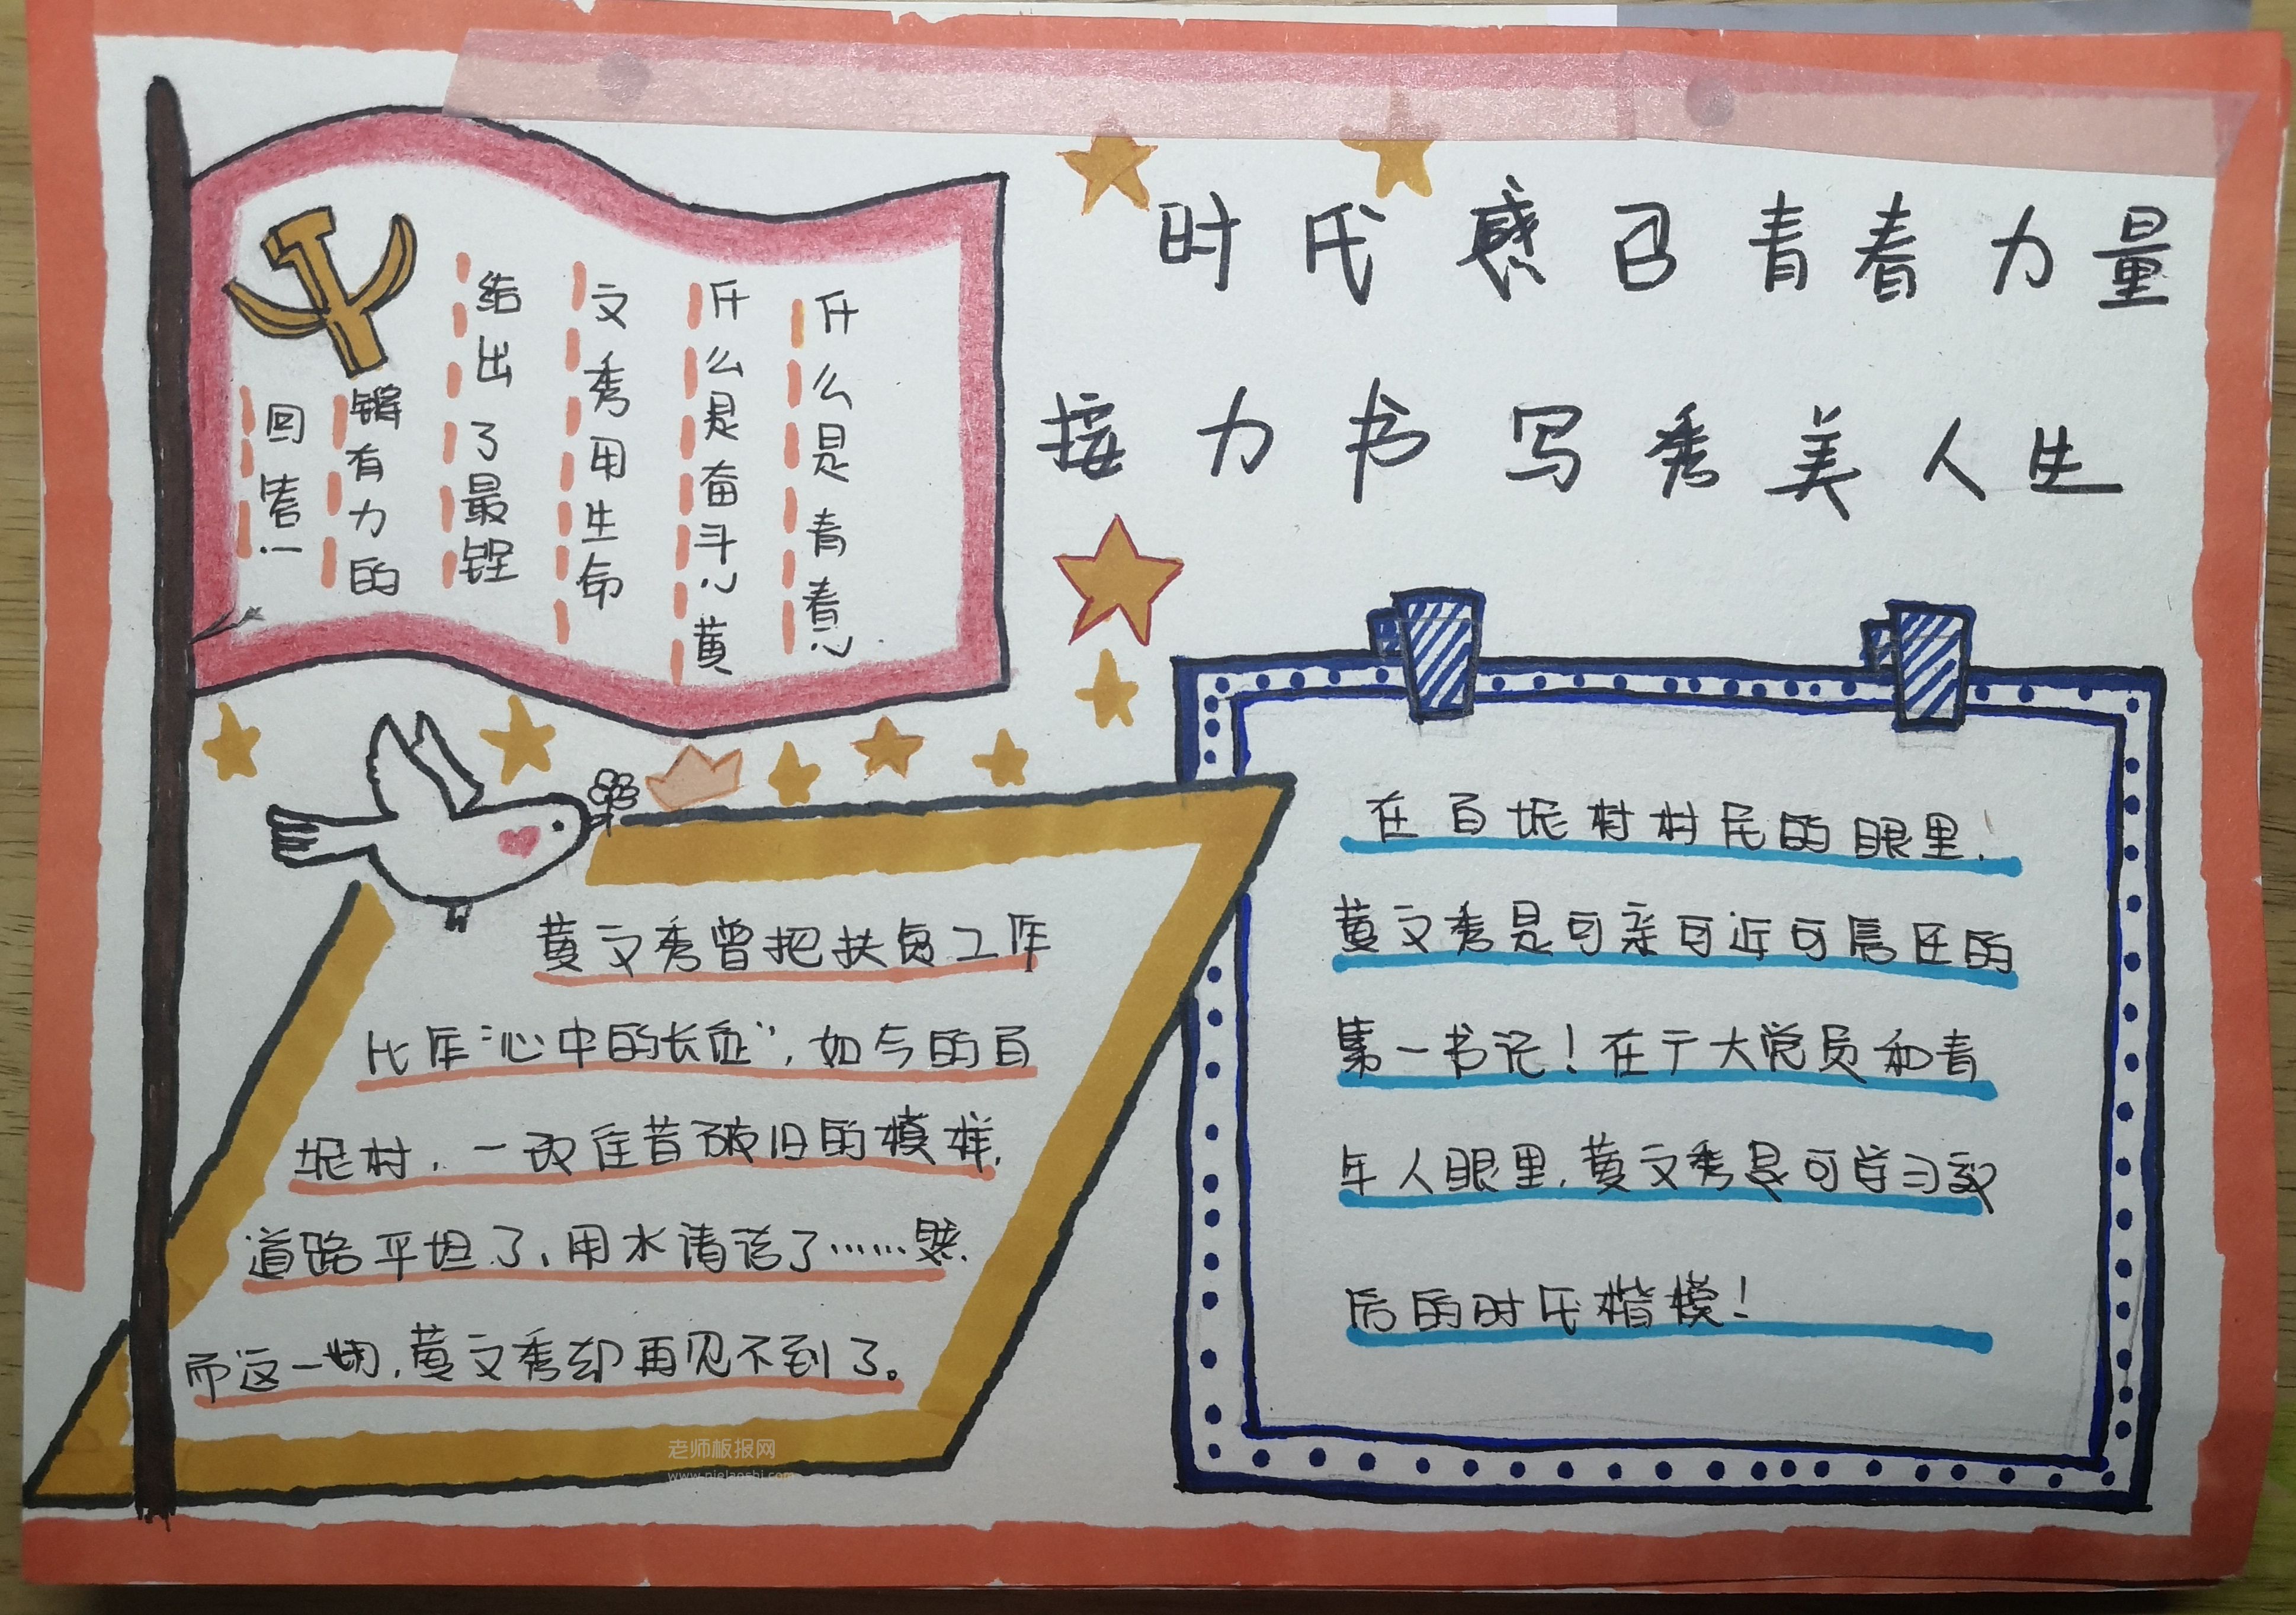 时代感召青春力量
接力书写秀美人生
什么是青春?
什么是奋斗?黄
文秀用生命
给出了最铿
锵有力的
回答!
黄文秀曾把扶贫工作
比作“心中的长征”,如今的百
坭村,一改往昔破旧的模样,
道路平坦了,用水清洁了……然
而这一切,黄文秀却再见不到了。
在百坭村村民的眼里,
黄文秀是可亲可近可信任的
第一书记!在广大党员和青
年人眼里,黄文秀是可学习效
后的时代楷模!
老师板报网
www.pielaoshi.com